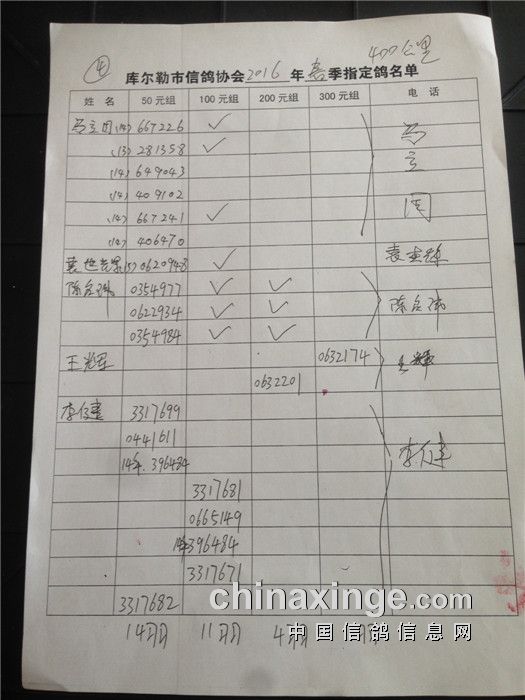 400公里
库尔勒市信鸽协会2016年春季指定鸽名单
姓 名 50元组 100元组 200元组 300元组 电 话
马立国 (14) 667226 ✓ 马立国
(13) 281358 ✓
(14) 649043
(14) 409102
(14) 667241 ✓
(14) 406470
0620948 ✓
0354977 ✓ ✓
0622934 ✓ ✓
0354984 ✓ ✓
王辉 0632174 王辉
0632201
3317699
0441611
14年.396484
3317681
0665149
14年396484
3317671
3317682
14羽 11羽 4羽
chinaxinge.com
中国信鸽信息网